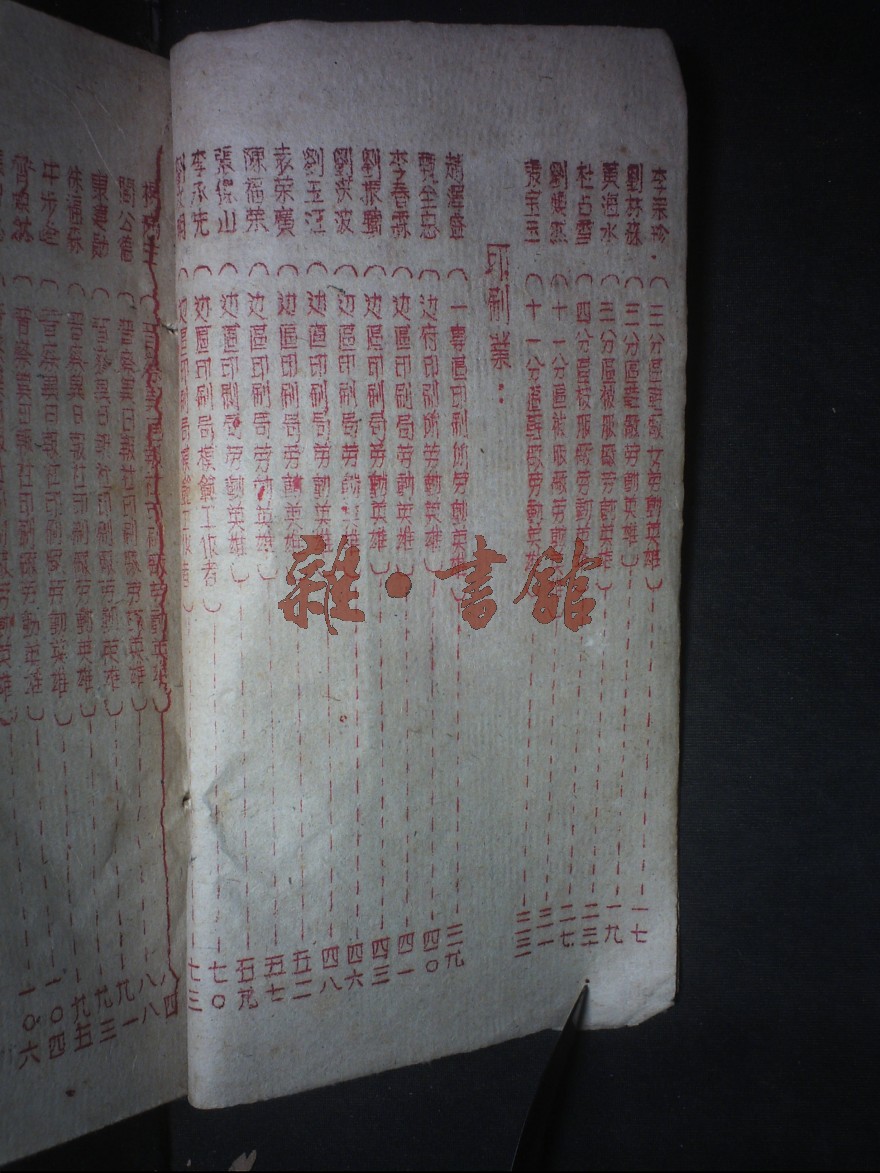 李秉珍（三分區鞋廠女勞動英雄）一七
劉林蘇（三分區鞋廠勞動英雄）一九
黃海水（三分區被服廠勞動英雄）二三
杜占雪（四分區被服廠勞動英雄）二七
劉煥然（十一分區被服廠勞動英雄）三一
張玉玉（十一分區鞋廠勞動英雄）三三
印刷業：
（一專區印刷所勞動英雄）三九
（边府印刷所勞動英雄）四〇
李春霖（边區印刷局勞動英雄）四一
劉振聲（边區印刷局勞動英雄）四三
劉英波（边區印刷局勞動英雄）四六
劉玉江（边區印刷局勞動英雄）四八
袁榮廣（边區印刷局勞動英雄）五二
陳福榮（边區印刷局勞動英雄）五七
張保山（边區印刷局勞動英雄）五九
李承先（边區印刷局模範工作者）七〇
（边區印刷局模範工作者）七三
（晉察冀日報社印刷廠勞動英雄）八四
閻公德（晉察冀日報社印刷廠勞動英雄）八八
（晉察冀日報社印刷廠勞動英雄）九一
徐福森（晉察冀日報社印刷廠勞動英雄）九三
牛步峰（晉察冀日報社印刷廠勞動英雄）九五
（晉察冀日報社印刷廠勞動英雄）一〇四
一〇六
雜·書館